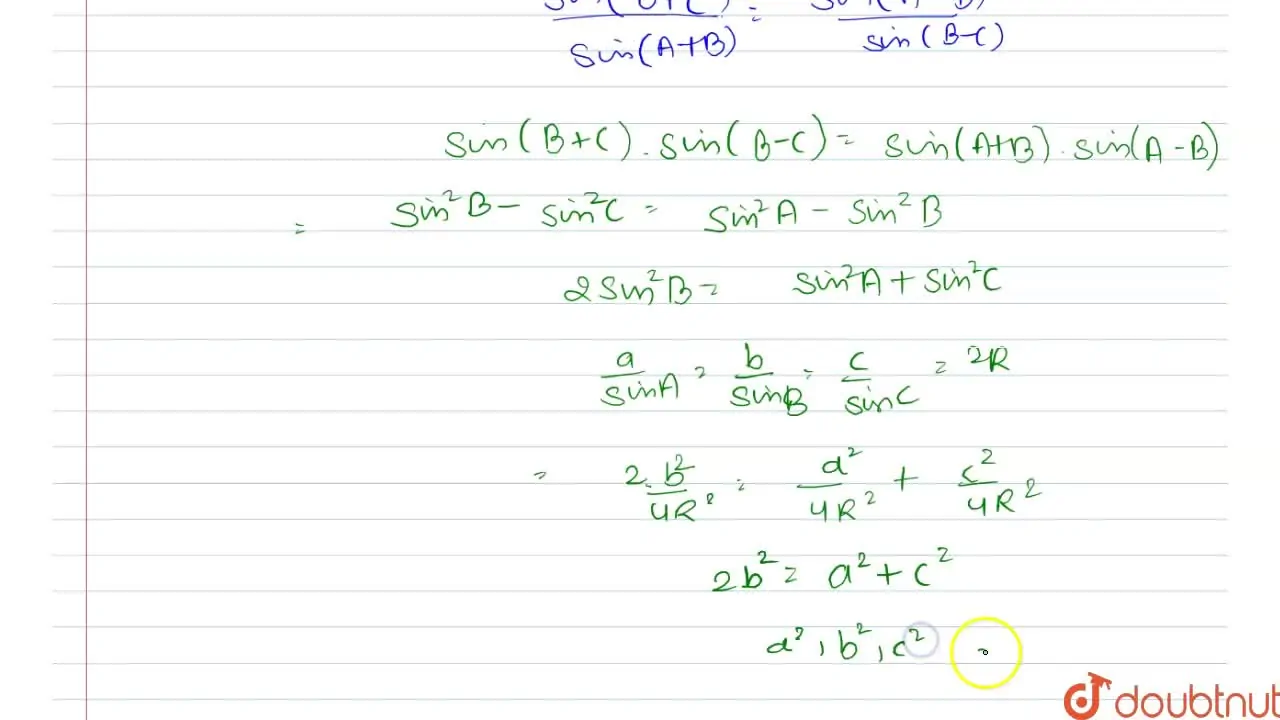 sin(B+C) = sin(A-B)
sin(A+B) sin(B-C)
sin(B+C).sin(B-C) = sin(A+B).sin(A-B)
= sin²B - sin²C = sin²A - sin²B
2sin²B = sin²A + sin²C
a/sinA = b/sinB = c/sinC = 2R
= 2.b²/4R² = a²/4R² + c²/4R²
2b² = a² + c²
a², b², c²
doubtnut